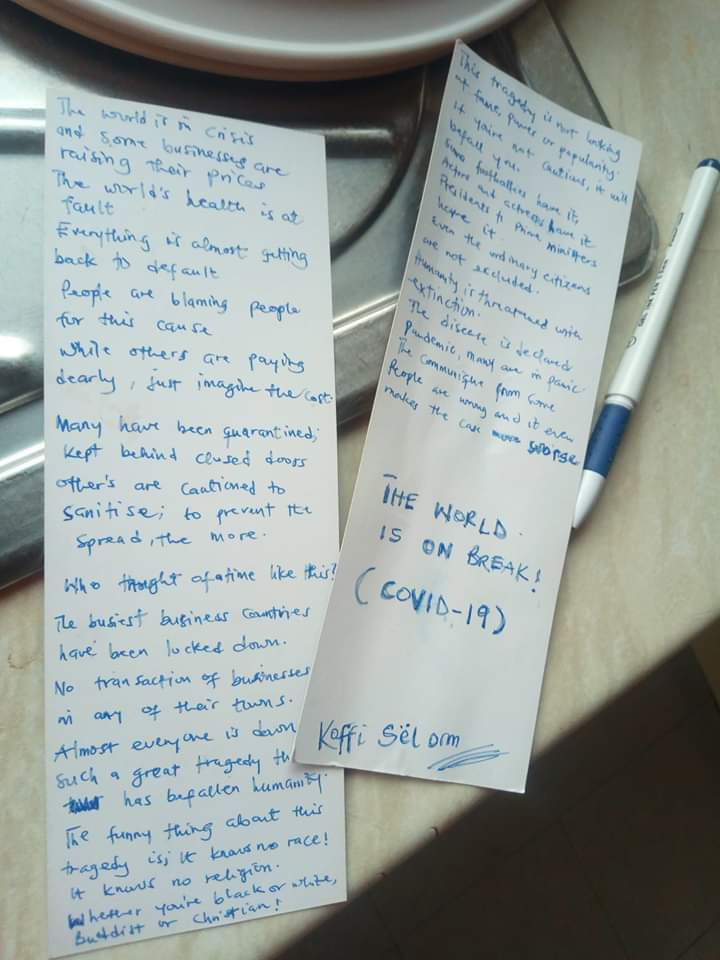 The world is in crisis
and some businesses are
raising their prices
The world's health is at
fault
Everything is almost getting
back to default
People are blaming people
for this cause
While others are paying
dearly, just imagine the cost.
Many have been quarantined;
kept behind closed doors
other's are cautioned to
sanitise; to prevent the
spread, the more.
Who thought of a time like this?
The busiest business countries
have been locked down.
No transaction of businesses
in any of their towns.
Almost everyone is down
such a great tragedy th
has befallen humanity.
The funny thing about this
tragedy is; it knows no race!
It knows no religion.
Whether you're black or white,
Buddist or Christian!
This tragedy is not looking
at fame, power or popularity.
If you're not cautious, it will
befall you.
Some footballers have it,
Actors and actresses have it
Presidents to Prime ministers
have it.
Even the ordinary citizens
are not excluded.
Humanity is threatened with
extinction.
The disease is declared
Pandemic, many are in panic
The communique from some
People are wrong and it even
makes the case worse
THE WORLD
IS ON BREAK!
(COVID-19)
Koffi Sël orm